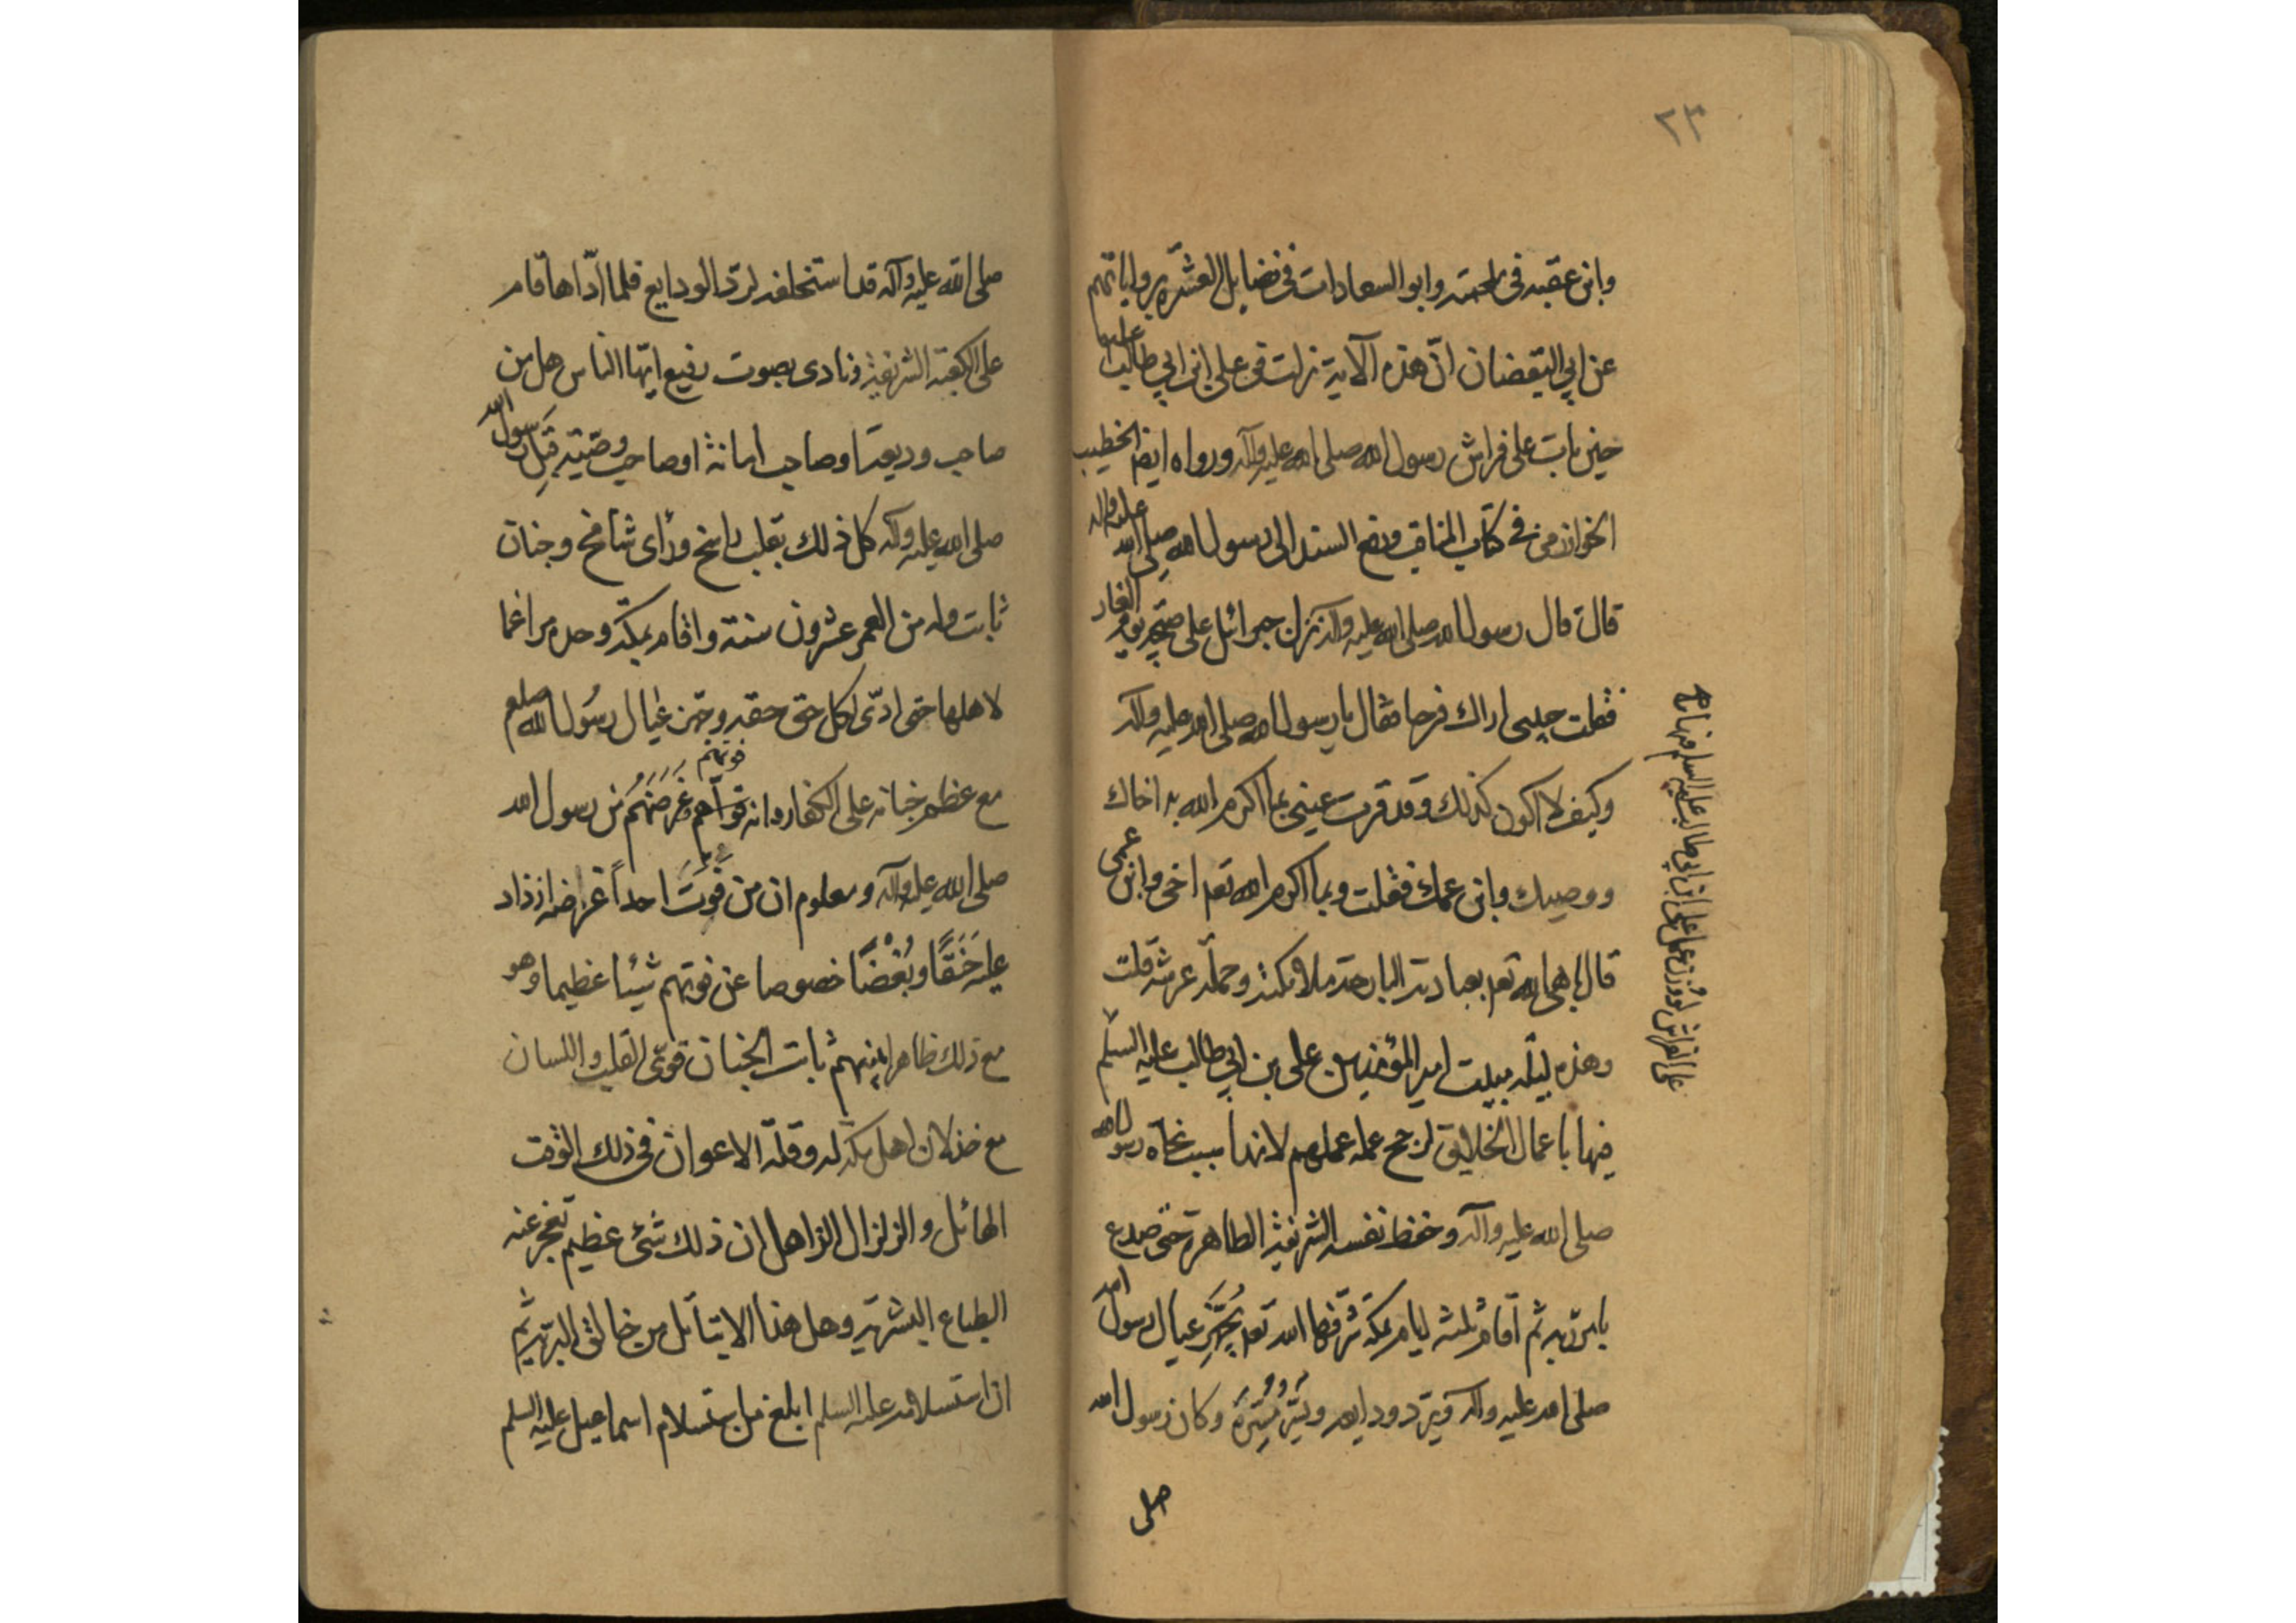 ٢٣
وابن عقبه في الجمته وابو السعادات في فضايل العشره برواياتهم
عن ابي اليقضان انّ هذه الآية نزلت في علي ابن ابي طالب عليهما
حين بات على فراش رسول الله صلى الله عليه وآله ورواه ايضا الخطيب
الخوارزمي في كتاب المناقب ورفع السند الى رسول الله صلى الله عليه واله
قال قال رسول الله صلى الله عليه وآله نزل جبرائيل على صبيحة يوم الغار
فقلت حبيبي اراك فرحا فقال يا رسول الله صلى الله عليه وآله
وكيف لا اكون كذلك وقد قرت عيني بما اكرم الله به اخاك
ووصيك وابن عمك فقلت وبما اكرم الله تعه اخي وابن عمي
قال باهى الله تعه بعبادته البارحة ملائكته وحملة عرشه قلت
وهذه ليلة مبيت امير المؤمنين علي بن ابي طالب عليه السلم
فيها باعمال الخلايق لرجح عمله عملهم لانها سبب نجاة رسول الله
صلى الله عليه وآله وحفظ نفسه الشريفة الطاهرة حتى صدع
بامر ربه ثم اقام ثلثة ايام بمكة شرّفها الله تعه يُجهّز عيال رسول الله
صلى الله عليه وآله ويردّ ودايعه ويستر وكان رسول الله
صلى
على الفراش لو وزن عمل علي ابن ابي طالب عليه السلم فيها رجح
صلى الله عليه وآله قد استخلفه لردّ الودايع فلما ادّاها قام
على الكعبة الشريفة ونادى بصوت رفيع ايّها الناس هل من
صاحب وديعة او صاحب امانة او صاحب وصيّة قِبَل رسول الله
صلى الله عليه وآله كل ذلك بقلب راسخ ورأى شامخ وجنان
ثابت وله من العمر عشرون سنة واقام بمكّة وحده مراغما
لاهلها حتى ادّى لكل حق حقه وجهز عيال رسُول الله صلعم
مع عظم جنايته على الكفار وانه فوتهم غرضهُم من رسول الله
صلى الله عليه وآله ومعلوم ان من فَوَّتَ احداً غرضه ازداد
عليه حَنَقًا وبُغْضًا خصوصا عن فوتهم شيئا عظيما وهو
مع ذلك ظاهر بينهم ثابت الجنان قوىّ القلب واللسان
مع خذلان اهل مكّة له وقلّة الاعوان في ذلك الوقت
الهائل والزلزال الزاهل ان ذلك شئ عظيم تعجز عنه
الطباع البشرية وهل هذا الا بتأييد من خالق البرية ثم
ان استسلامه عليه السلم ابلغ من استسلام اسماعيل عليه السلم